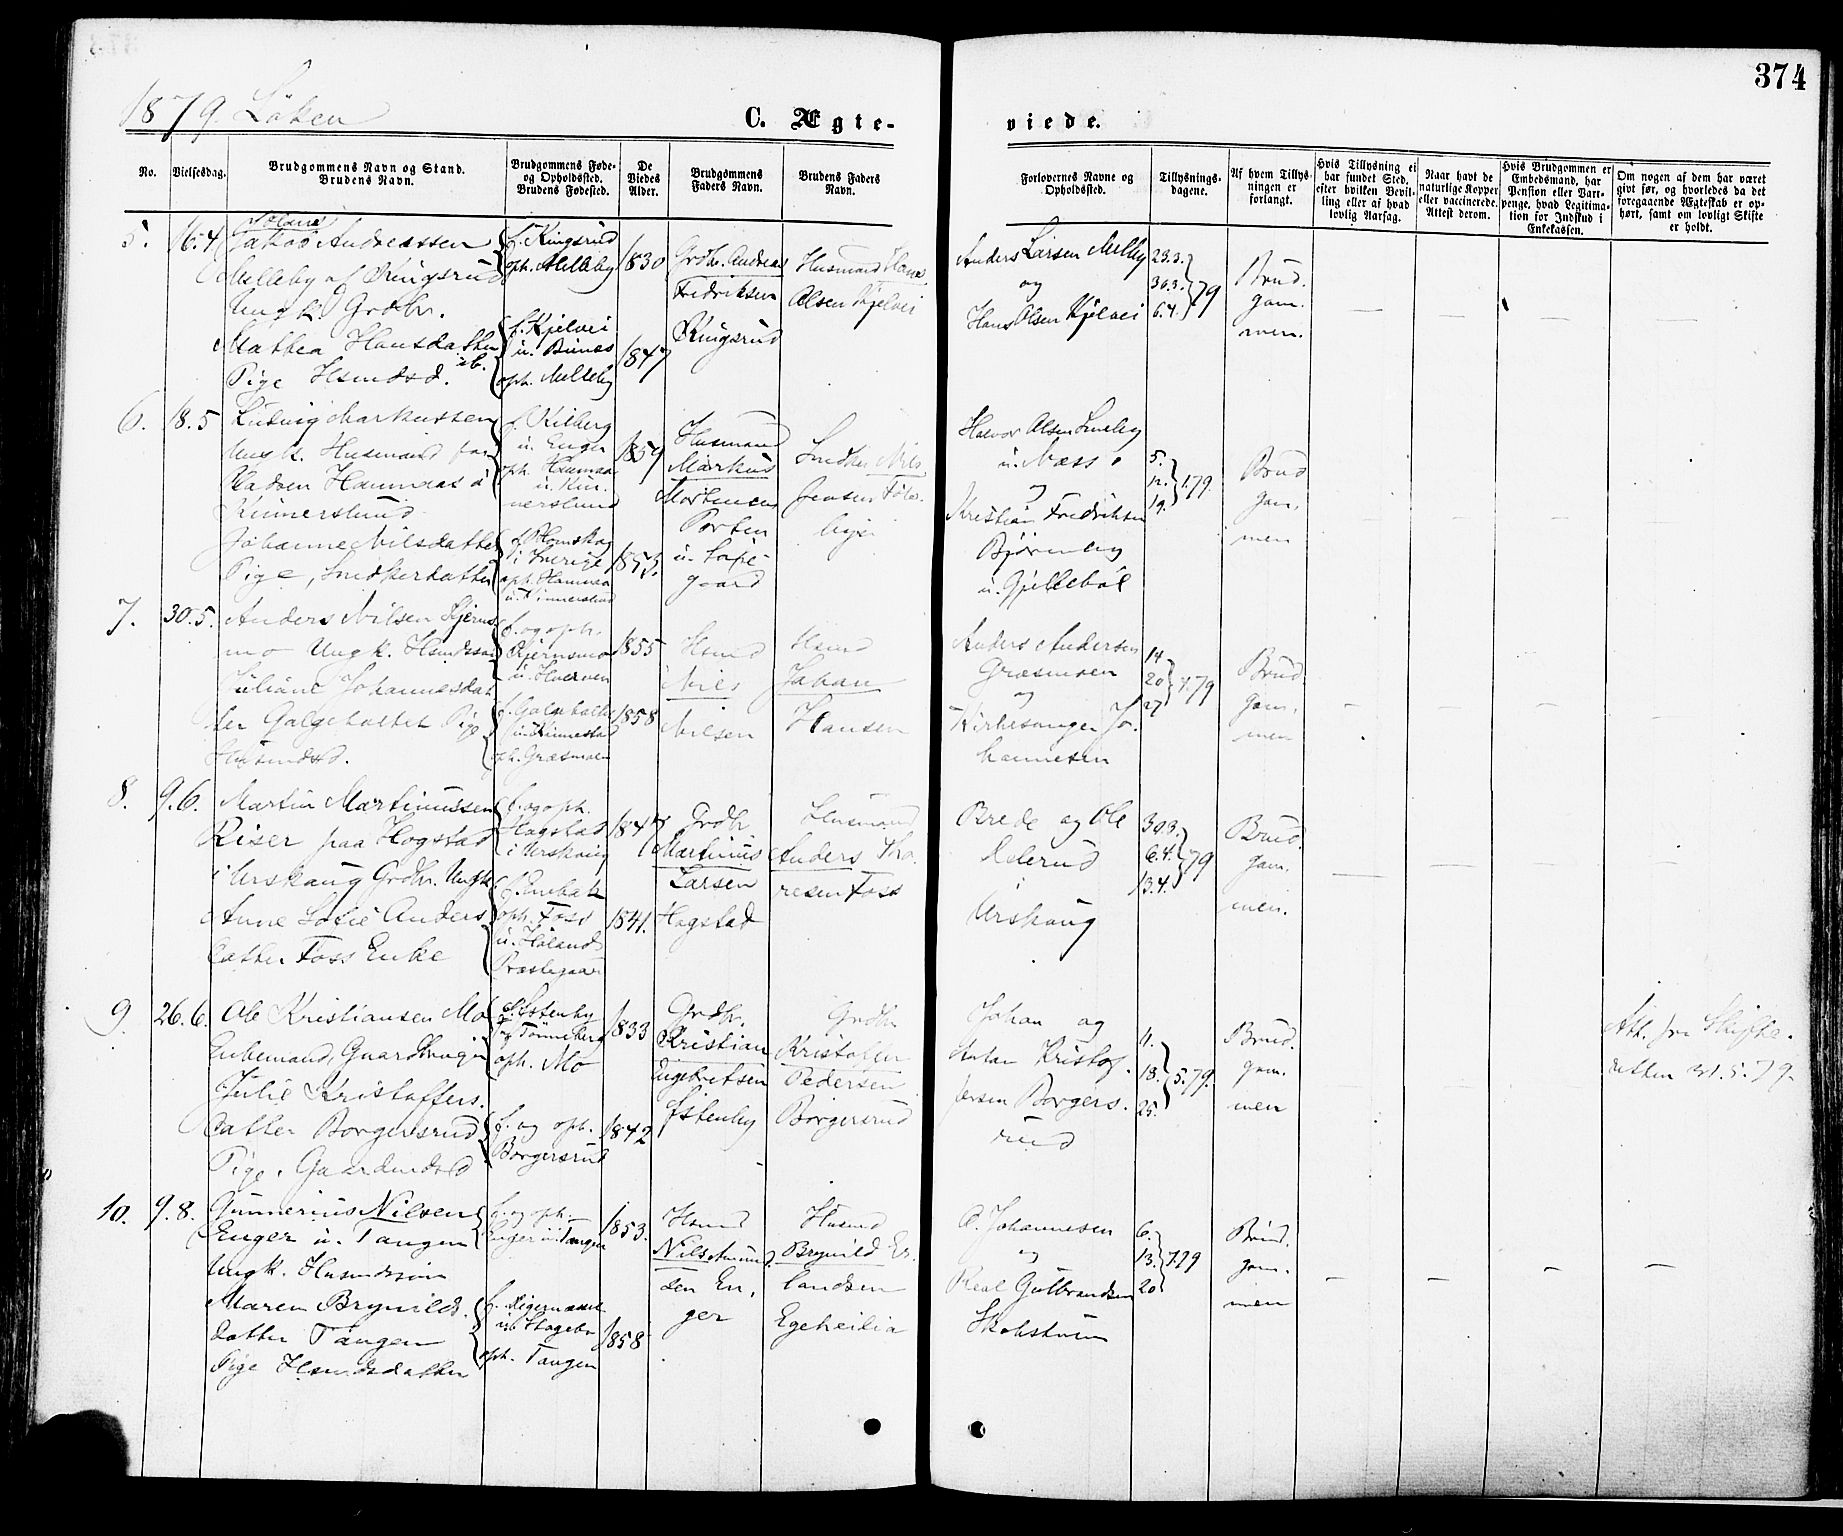 374
1879. Löken
C. Ægte-
viede.
No.
Vielsesdag.
Brudgommens Navn og Stand.
Brudens Navn.
Brudgommens Føde-
og Opholdssted.
Brudens Fødested.
De
Viedes
Alder.
Brudgommens
Faders Navn.
Brudens Faders
Navn.
Forlovernes Navne og
Opholdssted.
Tillysnings-
dagene.
Af hvem Tillys-
ningen er
forlangt.
Hvis Tillysning ei
har fundet Sted,
efter hvilken Bevil-
ling eller af hvad
lovlig Aarsag.
Naar havt de
naturlige Kopper
eller vaccinerede.
Attest derom.
Hvis Brudgommen er
Embedsmand, har
Pension eller Vart-
penge, hvad Legitima-
tion for Indskud i
Enkekassen.
Om nogen af dem har været
givt før, og hvorledes da det
foregaaende Ægteskab er op-
hørt, samt om lovligt Skifte
er holdt.
5.
16.4
Johan
Andreassen
Melleby af Kingsrud
Ungk. Grdbr.
Mathea Hansdatter
Pige Hsmdsd.
f. Kingsrud
oph. Melleby
f. Kjelvei
u. Bunes
oph. Melleby
1830
1847
Grdbr. Andreas
Fredriksen
Kingsrud
Husmand Hans
Olsen Kjelvei
Anders Larsen Melleby
og
Hans Olsen Kjølvei
23.3.
30.3.
6.4.
79
Brud.
gom.
men.
6.
18.5
Ludvig Markussen
Ungk. Husmand paa
Pladsen Hammas u
Kinnerslund
Johanne Nilsdatter
Pige, Snedkerdatter
f. Kilberg
u. Enger
oph. Hammas
u. Kin-
nerslund
i Sverige
oph. Hammas
u. Kinnerslund
1859
1853.
Husmand
Markus
Mortensen
Porten
gaard
Snedker Nils
Jensen
Halvor Olsen
u. Næss
og
Kristian Fredriksen
Bjørneby
u. Gjellebøl
5.
12.
19.
1.79.
Brud
gom.
men
7.
30.5.
Anders Nilsen Kjerns-
mo Ungk. Hsmdssøn
Juliane Johannesdat
ter Galgeholtet Pige
Husmdsd.
f. og oph.
Kjernsmo
u. Hverven
f. Galgeholtet
u. Kinnestad
oph. Græsmoen
1855
1858
Hsmd
Nils
Nilsen
Hsmd
Johan
Hansen
Anders Andersen
Græsmoen
og
Kirkesanger Jo-
hannesen
14
20
27
79
Brud.
gom.
men
8.
9.6.
Martin Martinussen
Riser paa Hogstad
i Urskoug Grdbr. Ungk
Anne Sofie Anders
datter Foss Enke
f. og oph.
Hogstad
i Urskoug
oph. Foss
u. Hølands
Præstegaard
1847
1841.
Grdbr
Martinius
Larsen
Hogstad
Husmand
Anders Tho-
resen Foss
Brede og Ole
Urskoug
30.3.
6.4.
13.4.
79
Brud.
gom.
men.
9
26.6.
Ole Kristiansen Mo
Enkemand, Gaardbruger
Julie Kristoffers.
datter Borgersrud
Pige, Gaardmdsd
f. Estenby
i Tønneberg
oph. Mo
f. og oph.
Borgersrud
1833
1842
Grdbr.
Kristian
Engebretsen
Estenby
Grdbr
Kristoffer
Pedersen
Borgersrud
Johan og
Anton Kristof-
fersen Borgers.
rud
4.
18.
25.
5.79.
Brud.
gom.
men
Att. fra Skifte-
retten 21.5.79.
10.
9.8.
Gunnerius Nilsen
Enger u. Tangen
Ungk. Husmdssøn
Maren Brynilds.
datter Tangen
Pige Hsmdsdatter
f. og oph.
Enger u. Tangen
oph. Tangen
1853.
1858
Hsmd
Nils Amund-
sen En.
ger
Husmd
Brynild Er-
landsen
Egeheilia
O. Johannesen
og
Gulbrandsen
Skolstuen
6.
13.
20
7.79
Brud.
gom.
men